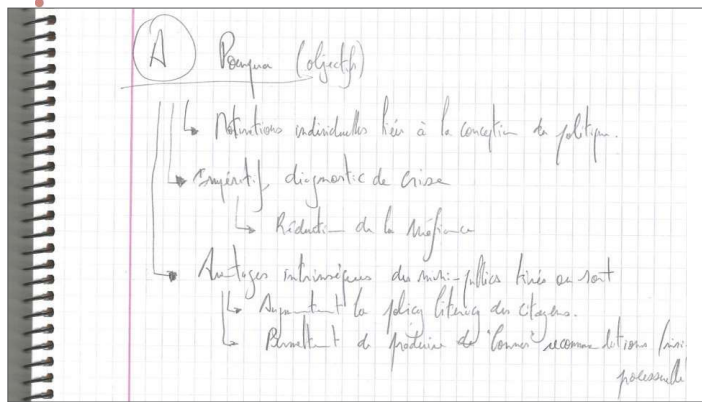 A Pourquoi (objectifs)
Motivations individuelles liées à la conception de politique.
Impératif, diagnostic de crise
Réduction de la méfiance
Avantages intrinsèques des mini-publics tirés au sort
Augmentent la policy literacy des citoyens.
Permettent de produire de "bonnes" recommandations
processuelle